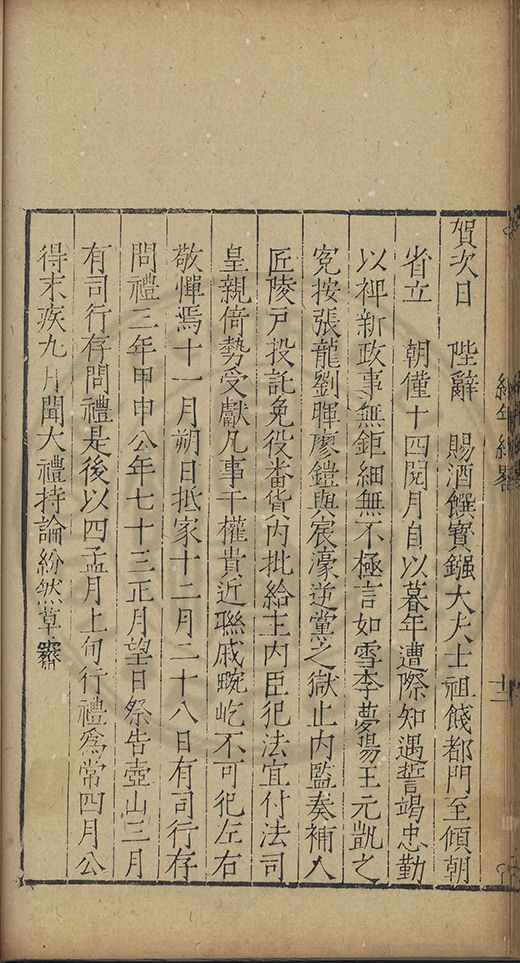 賀次日　陛辭　賜酒饌寶鏹大夫士祖餞都門至傾朝
省立　朝僅十四閱月自以暮年遭際知遇誓竭忠勤
以裨新政事無鉅細無不極言如雪李夢陽王元凱之
寃按張龍劉暉廖鎧與宸濠逆黨之獄止內監奏補人
匠陵戸投託免役番貨內批給主內臣犯法宜付法司
皇親倚勢受獻凡事干權貴近聮戚畹屹不可犯左右
敬憚焉十一月朔日抵家十二月二十八日有司行存
問禮三年甲申公年七十三正月望日祭告壺山三月
有司行存問禮是後以四孟月上旬行禮爲常四月公
得末疾九月聞大禮持論紛然草